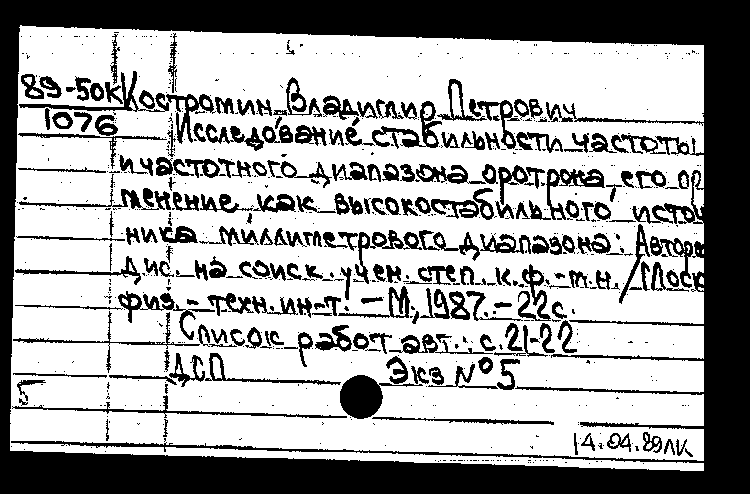 89-50к Костромин Владимир Петрович
1076 Исследование стабильности частоты
и частотного диапазона оротрона, его пр
менение как высокостабильного исто
ника миллиметрового диапазона: Авторе
дис. на соиск. учен. степ. к.ф.-м.н. / Моск
физ.-техн. ин-т. – М., 1987. – 22с.
Список работ авт.: с. 21-22
ДСП Экз № 5
5
14.04.89ЛК